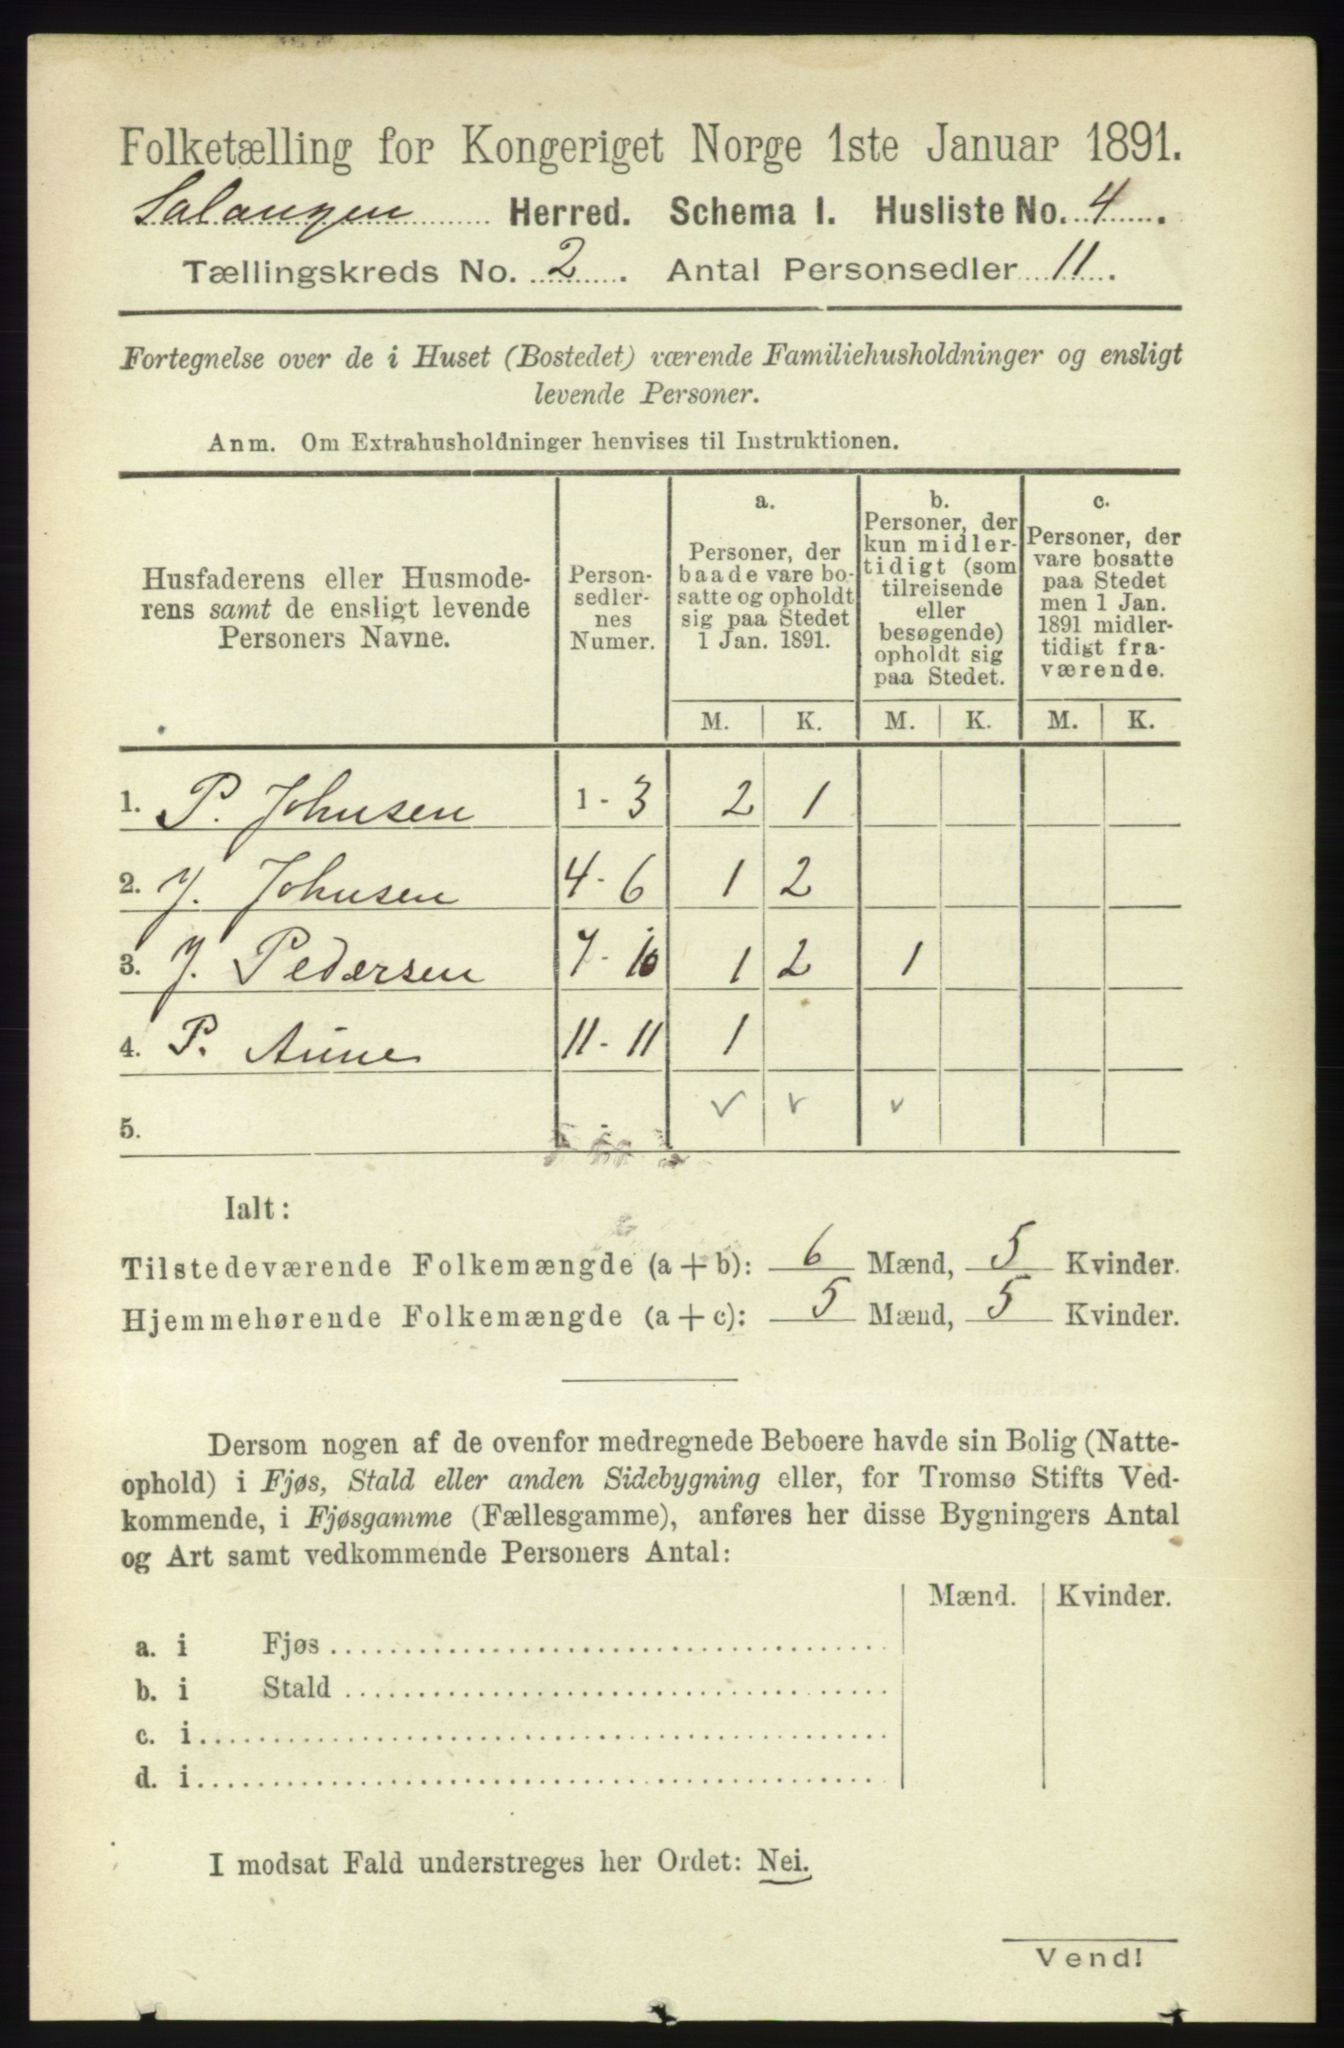 Folketælling for Kongeriget Norge 1ste Januar 1891.
Salangen Herred. Schema I. Husliste No. 4.
Tællingskreds No. 2. Antal Personsedler 11.
Fortegnelse over de i Huset (Bostedet) værende Familiehusholdninger og ensligt
levende Personer.
Anm. Om Extrahusholdninger henvises til Instruktionen.
Husfaderens eller Husmode-
rens samt de ensligt levende
Personers Navne.
Person-
sedler-
nes
Numer.
a.
Personer, der
baade vare bo-
satte og opholdt
sig paa Stedet
1 Jan. 1891.
b.
Personer, der
kun midler-
tidigt (som
tilreisende
eller
besøgende)
opholdt sig
paa Stedet.
c.
Personer, der
vare bosatte
paa Stedet
men 1 Jan.
1891 midler-
tidigt fra-
værende.
M. K. M. K. M. K.
1. P. Johnsen 1 - 3 2 1
2. J. Johnsen 4 - 6 1 2
3. J. Pedersen 7 - 10 1 2 1
4. P. Aune 11 - 11 1
5. -
Ialt:
Tilstedeværende Folkemængde (a + b): 6 Mænd, 5 Kvinder.
Hjemmehørende Folkemængde (a + c): 5 Mænd, 5 Kvinder.
Dersom nogen af de ovenfor medregnede Beboere havde sin Bolig (Natte-
ophold) i Fjøs, Stald eller anden Sidebygning eller, for Tromsø Stifts Ved-
kommende, i Fjøsgamme (Fællesgamme), anføres her disse Bygningers Antal
og Art samt vedkommende Personers Antal:
Mænd. Kvinder.
a. i Fjøs
b. i Stald
c. i
d. i
I modsat Fald understreges her Ordet: Nei.
Vend!